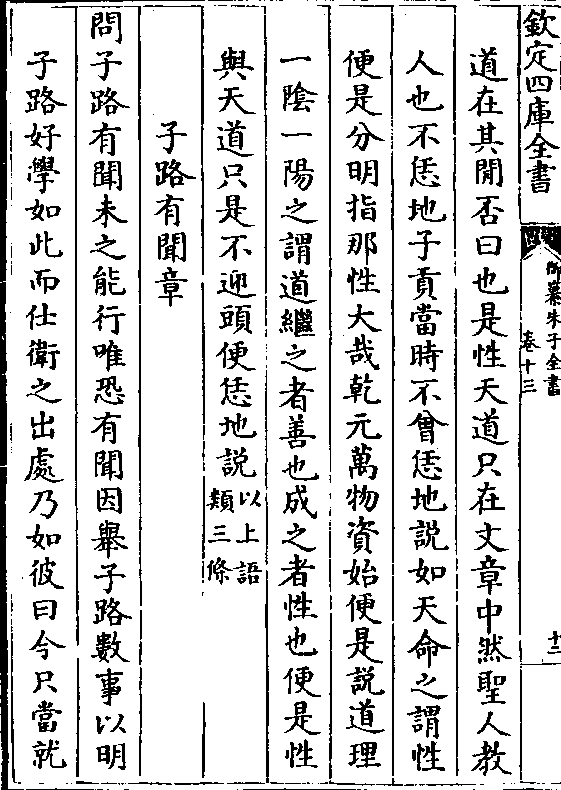 欽定四庫全書
御纂朱子全書
卷十三
十二
道在其閒否曰也是性天道只在文章中然聖人教
人也不恁地子貢當時不曾恁地說如天命之謂性
便是分明指那性大哉乾元萬物資始便是說道理
一陰一陽之謂道繼之者善也成之者性也便是性
與天道只是不迎頭便恁地說以上語類三條
子路有聞章
問子路有聞未之能行唯恐有聞因舉子路數事以明
子路好學如此而仕衛之出處乃如彼曰今只當就